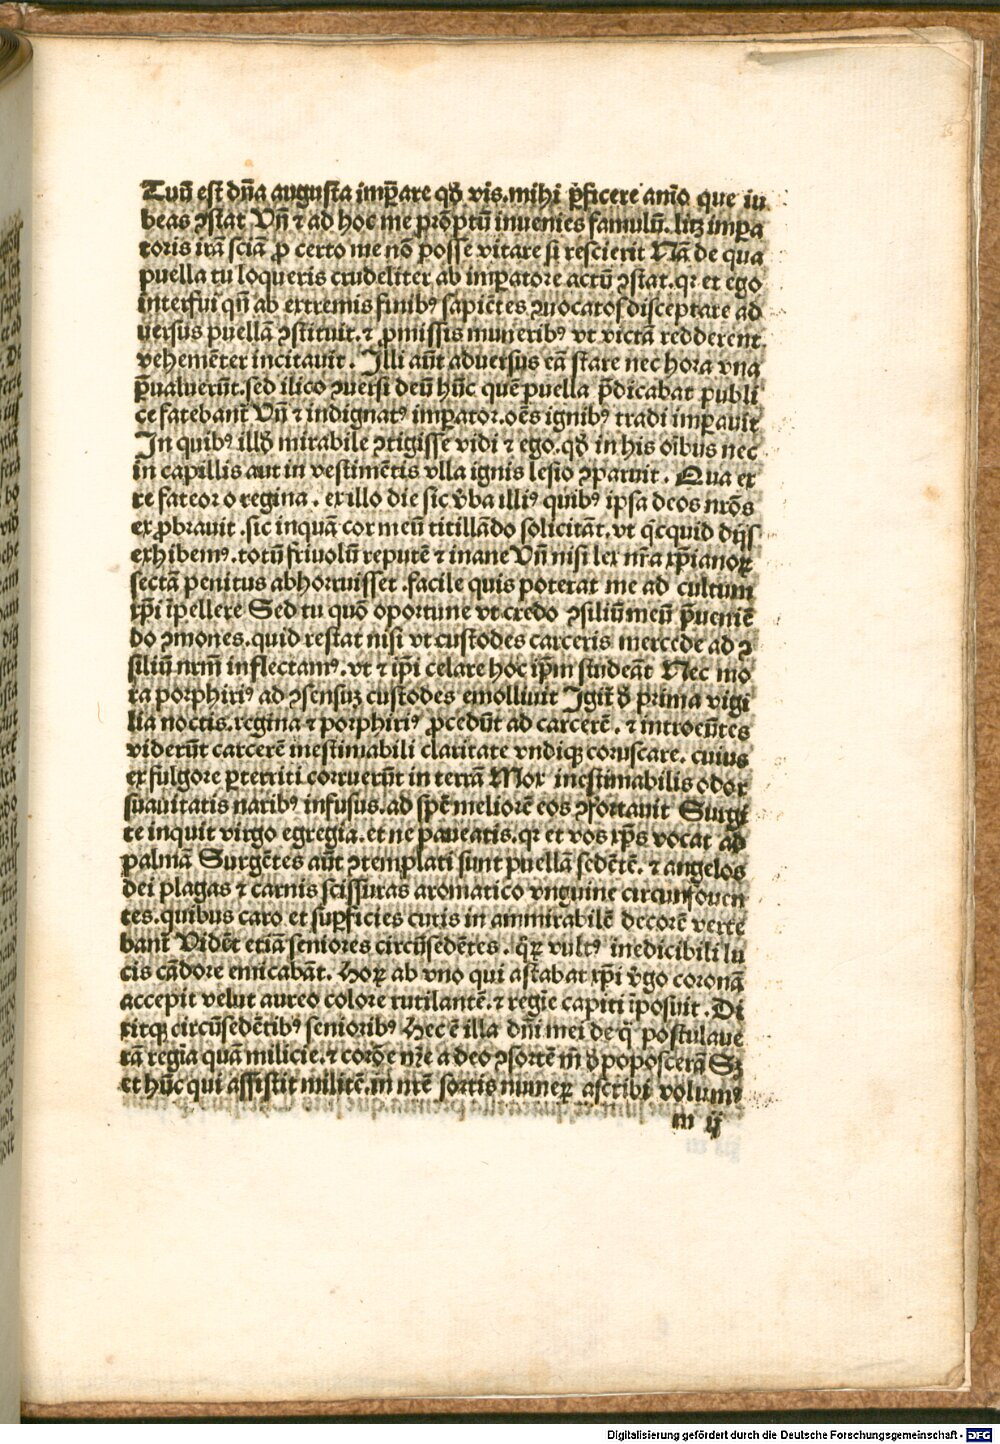 Tuū est dn̄a augusta imꝑare qđ vis. mihi ꝑficere anīo que iu
beas ꝯstat Vn̄ ⁊ ad hoc me prōptū invenies famulū. lꝫ imꝑa
toris irā sciā ꝓ certo me nō posse vitare si rescierit Nā de qua
puella tu loqueris crudeliter ab imꝑatore actū ꝯstat. qꝛ et ego
interfui qn̄ ab extremis finibꝰ sapiētes ꝯuocatos disceptare ad
uersus puellā ꝯstituit. ⁊ ꝓmissis muneribꝰ vt victā redderent
vehemēter incitauit. Illi aūt aduersus eā stare nec hora vna
p̄ualuerūt. sed ilico ꝯuersi deū hūc quē puella p̄dicabat publi
ce fatebant̄ Vn̄ ⁊ indignatꝰ imꝑator. oēs ignibꝰ tradi imꝑauit
In quibꝰ illđ mirabile ꝯtigisse vidi ⁊ ego. qđ in his oībus nec
in capillis aut in vestimētis vlla ignis lesio ꝯparuit. Qua ex
re fateor o regina. ex illo die sic v̄ba illiꝰ quibꝰ ipsa deos nr̄os
exprobrauit. sic inquā cor meū titillādo solicitāt. vt qͥcquid dijs
exhibemꝰ. totū friuolū reputē ⁊ inane Vn̄ nisi lex nr̄a xp̄ianoꝝ
sectā penitus abhorruisset. facile quis poterat me ad cultum
xp̄i īpellere Sed tu quō oportune vt credo ꝯsiliū meū p̄uenie
do ꝯmones. quid restat nisi vt custodes carceris mercede ad ꝯ
siliū nr̄m inflectamꝰ. vt ⁊ ip̄i celare hoc ip̄m studeāt Nec mo
ra porphiriꝰ ad ꝯsensuꝫ custodes emolliuit Igit̄ đ prima vigi
lia noctis. regina ⁊ porphiriꝰ ꝓcedūt ad carcerē. ⁊ introeūtes
viderūt carcerē inestimabili claritate vndiqꝫ coruscare. cuius
ex fulgore ꝑterriti corruerūt in terrā Mox inestimabilis odor
suauitatis naribꝰ infusus. ad spē meliorē eos ꝯfortauit Surgi
te inquit virgo egregia. et ne paueatis. qꝛ et vos xp̄s vocat ad
palmā Surgētes aūt ꝯtemplati sunt puellā sedētē. ⁊ angelos
dei plagas ⁊ carnis scissuras aromatico vnguine circunfouen
tes. quibus caro et suꝑficies cutis in ammirabilē decorē verte
bant̄ Vidēt etiā seniores circūsedētes. qͦꝝ vultꝰ inedicibili lu
cis cādore emicabāt. Hoꝝ ab vno qui astabat xp̄i v̄go coronā
accepit velut aureo colore rutilantē. ⁊ regīe capiti īposuit. Di
xitqꝫ circūsedētibꝰ senioribꝰ Hec ē illa dn̄i mei de qͣ postulaue
rā regīa quā milicie. ⁊ corōe nr̄e a deo ꝯsortē
et hūc qui assistit militē. in nr̄ē sortis muneꝝ ascribi volumꝰ
m ij
Digitalisierung gefördert durch die Deutsche Forschungsgemeinschaft - DFG